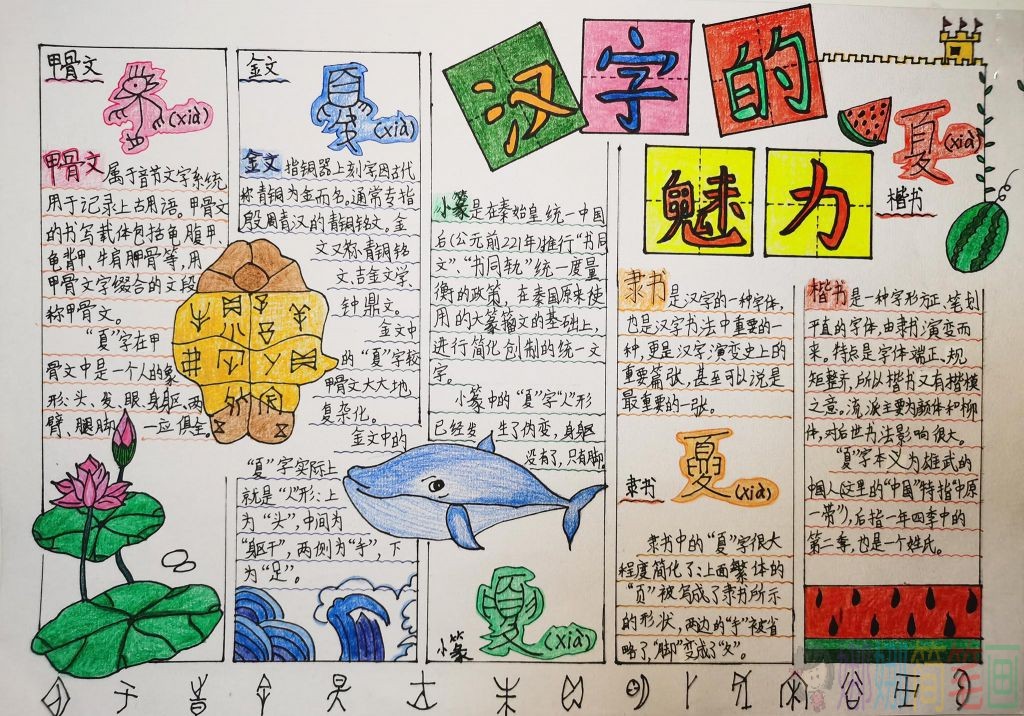 汉字的
魅力
甲骨文
(xià)
甲骨文属于音节文字系统,
用于记录上古用语。甲骨文
的书写载体包括龟腹甲、
龟背甲、牛肩胛骨等,用
甲骨文字缀合的文段
称甲骨文。
“夏”字在甲
骨文中是一个人的象
形:头、发、眼、身躯、两
臂、腿脚一应俱全。
金文
(xià)
金文 指铜器上刻字因古代
称青铜为金而名。通常专指
殷周青汉的青铜铭文。金
文又称青铜铭
文、吉金文学、
钟鼎文。
金文中
的“夏”字较
甲骨文大大地
复杂化。
金文中的
“夏”字实际上
就是“人”形:上
为“头”,中间为
“躯干”,两侧为“手”,下
为“足”。
小篆是在秦始皇统一中国
后(公元前221年)推行“书同
文”、“书同轨”统一度量
衡的政策,在泰国原来使
用的大篆籀文的基础上,
进行简化创制的统一文
字。
小篆中的“夏”字“人”形
已经发生了伪变,身躯
没有了,只有脚。
小篆
夏(xià)
隶书是汉字的一种字体,
也是汉字书法中重要的一
种,更是汉字演变史上的
重要篇张,甚至可以说是
最重要的一张。
隶书 夏(xià)
隶书中的“夏”字很大
程度简化了:上面繁体的
“页”被写成了隶书所示
的形状,两边的“手”被省
略了,“脚”变成了“夂”。
夏(xià)
楷书
楷书是一种字形方正、笔划
平直的字体,由隶书演变而
来。特点是字体端正、规
矩整齐,所以楷书又有楷模
之意。流派主要为颜体和柳
体,对后世书法影响很大。
“夏”字本义为雄武的
中国人(这里的“中国”特指“中原
一带”),后指一年四季中的
第二季,也是一个姓氏。
简笔画